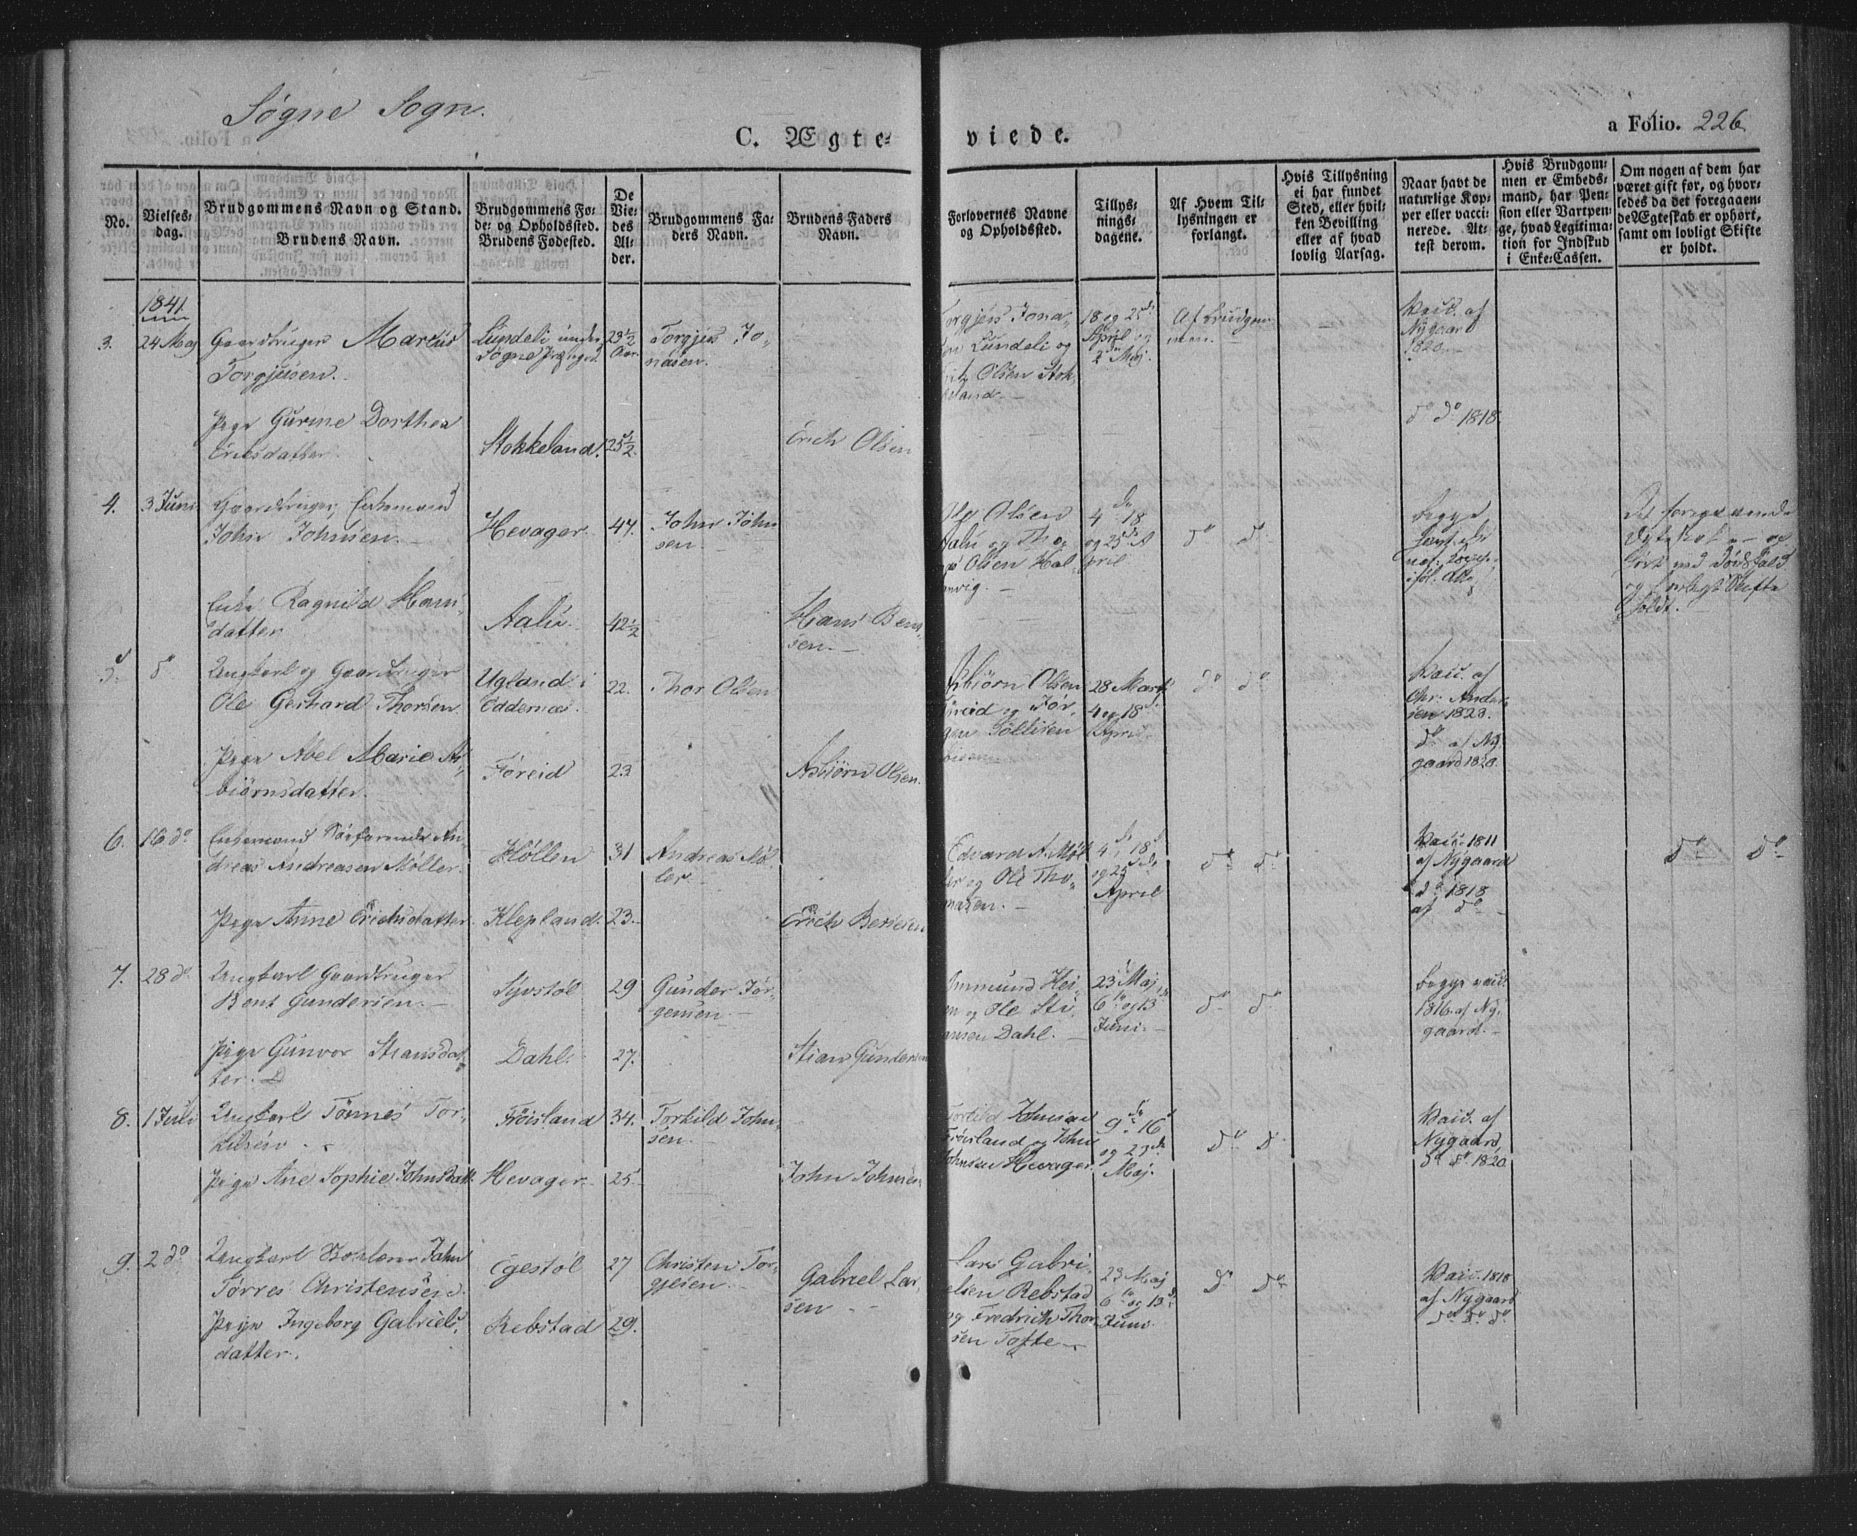 Søgne Sogn.
C. Ægte-
viede.
a Folio. 226
No.
Vielses-
dag.
Brudgommens Navn og Stand.
Brudens Navn.
Brudgommens Fø-
de- og Opholdsted.
Brudens Fødested.
De
Vie-
des
Al-
der.
Brudgommens Fa-
ders Navn.
Brudens Faders
Navn.
Forlovernes Navne
og Opholdsted.
Tillys-
nings-
dagene.
Af Hvem Til-
lysningen er
forlangt.
Hvis Tillysning
ei har fundet
Sted, eller hvil-
ken Bevilling
eller af hvad
lovlig Aarsag.
Naar havt de
naturlige Kop-
per eller vacci-
nerede. At-
test derom.
Hvis Brudgom-
men er Embeds-
mand, har Pen-
sion eller Vartpen-
ge, hvad Legitima-
tion for Indskud
i Enke-Cassen.
Om nogen af dem har
været gift før, og hvor-
ledes da det foregaaen-
de Ægteskab er ophørt,
samt om lovligt Skifte
er holdt.
1841
3.
24 Maj
Gaardbruger Marcus
Torgjusen.
Lundeli under
Søgne
23½
Aar.
Torgjus Jo-
nasen.
Torgjus Jona-
Lundeli og
Olsen Stok-
land.
18 og 25de
April og
2den Maj.
Af Brudgom-
men.
Vacc. af
Nygaard
1820.
Pige Gurine Dorthea
Erichsdatter.
Stokkeland.
25½
Erich Olsen
do do 1818.
4.
3 Juni
Gaardbruger, Enkemand
John Johnsen.
Hevager
47.
John John-
sen.
Olsen
og
Olsen Hal-
vig.
4de 18
og 25de
April
do do
Begge
Det foregaaende
Ægteskab
ført ved Dødsfald
og Skifte
holdt.
Enke Ragnild Hans-
datter
Aalie.
42½
Hans Ben-
sen.
5.
do
Ungkarl og Gaardbruger
Ole Gerhard Thorsen.
Ugland i
Oddernes.
22.
Thor Olsen
Asbiørn Olsen
Føreid og Jør-
gen
28 Marts
4 og 18
April
do do
Vacc. af
Chr. Ander-
sen 1823.
Pige Abel Marie As-
biørnsdatter.
Føreid
23
Asbiørn Olsen.
do af Ny-
gaard 1820.
6.
16 do
Enkemand Søefarende An-
dreas Andreasen Møller.
Høllen
31
Andreas Møl-
ler.
Edvard A. Møl-
ler og Ole Tho-
masen.
4de 18de
og 25de
April
do do
Vacc. 1811
af Nygaard
do do
Pige Anne Erichsdatter
Klepland.
23.
Erich Bentsen
do 1818
af do
7.
28 do
Ungkarl Gaardbruger
Bent Gundersen.
Syvstøl
29
Gunder Jør-
gensen.
Ommund
og Ole Sti-
ansen Dahl.
23 Maj
6te og 13
Juni.
do do
Begge vacc.
1816 af Ny-
gaard.
Pige Gunvor Stiansdat-
ter.
Dahl.
27.
Stian Gundersen
8.
1 Juli
Ungkarl Tønnes Tor-
kilsen
Frøisland
34.
Torkild John-
sen.
Torkild Johnsen
Frøisland og John
Johnsen Hevager
9de 16
og 23de
Maj.
do do
Vacc. af
Nygaard
do do 1820
Pige Ane Sophie Johnsdatt.
Hevager
25
John Johnsen
9.
2 do
Ungkarl
Tørres Christensen.
Egestøl
27
Christen Tor-
gjesen
Lars Gabri-
elsen Rebstad
og Fredrich Thor-
sen Tofte
23 Maj
6te og 13de
Juni
do do
Vacc. 1818
af Nygaard
do do do
Pige Ingeborg Gabriels-
datter.
Rebstad
29.
Gabriel Lar-
sen